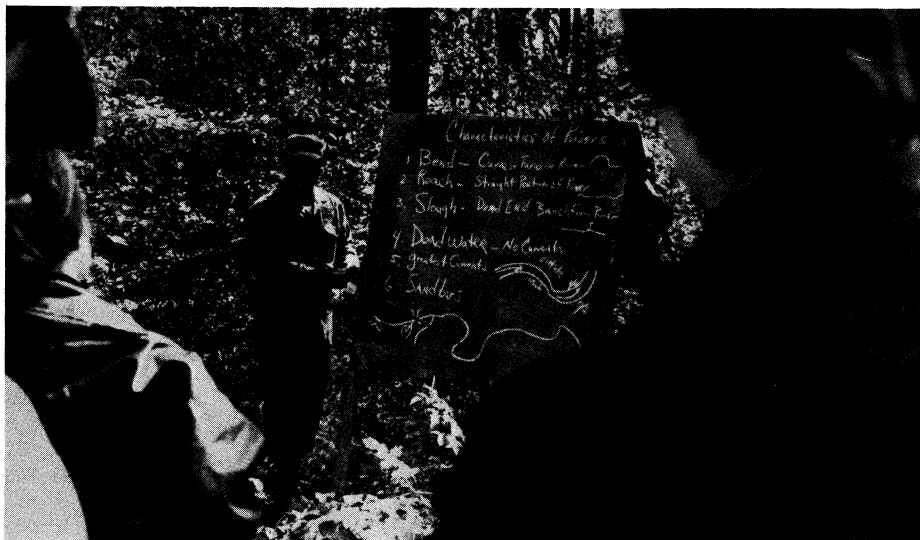 Characteristics of Rivers
1. Bend - Curve in
2. Reach - Straight Portion of River
3. Slough - Dead End Branch from River
4. Dead water - No Currents
5. greatest Currents
6. Sandbars